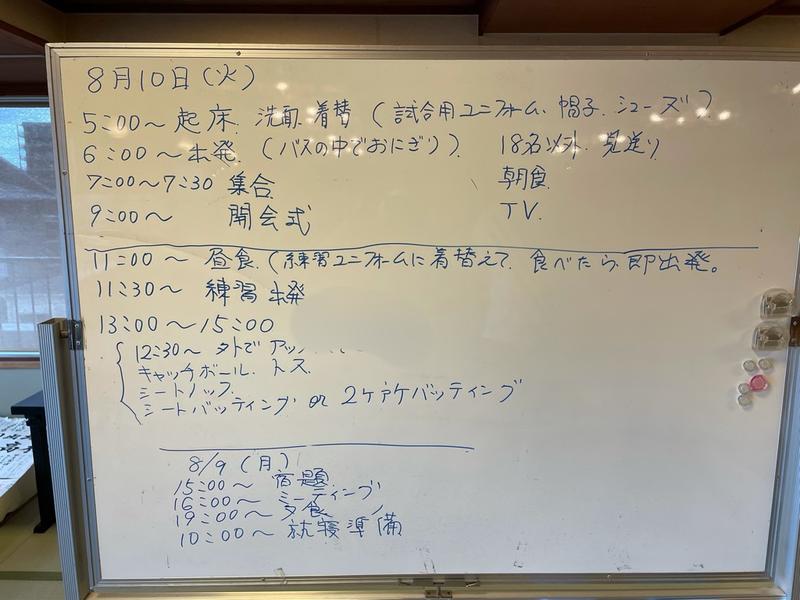 8月10日(火)
5:00〜起床. 洗面. 着替 (試合用ユニフォーム. 帽子. シューズ)
6:00〜出発. (バスの中でおにぎり). 18名以外. 見送り
7:00〜7:30 集合. 朝食.
9:00〜 開会式 TV.
11:00〜 昼食. (練習ユニフォームに着替えて. 食べたら. 即出発。
11:30〜 練習出発
13:00〜15:00
12:30〜 外でアップ
キャッチボール. トス.
シートノック.
シートバッティング or 2ケ所ケバッティング
8/9 (月)
15:00〜 宿題
16:00〜 ミーティング
19:00〜 夕食
10:00〜 就寝準備